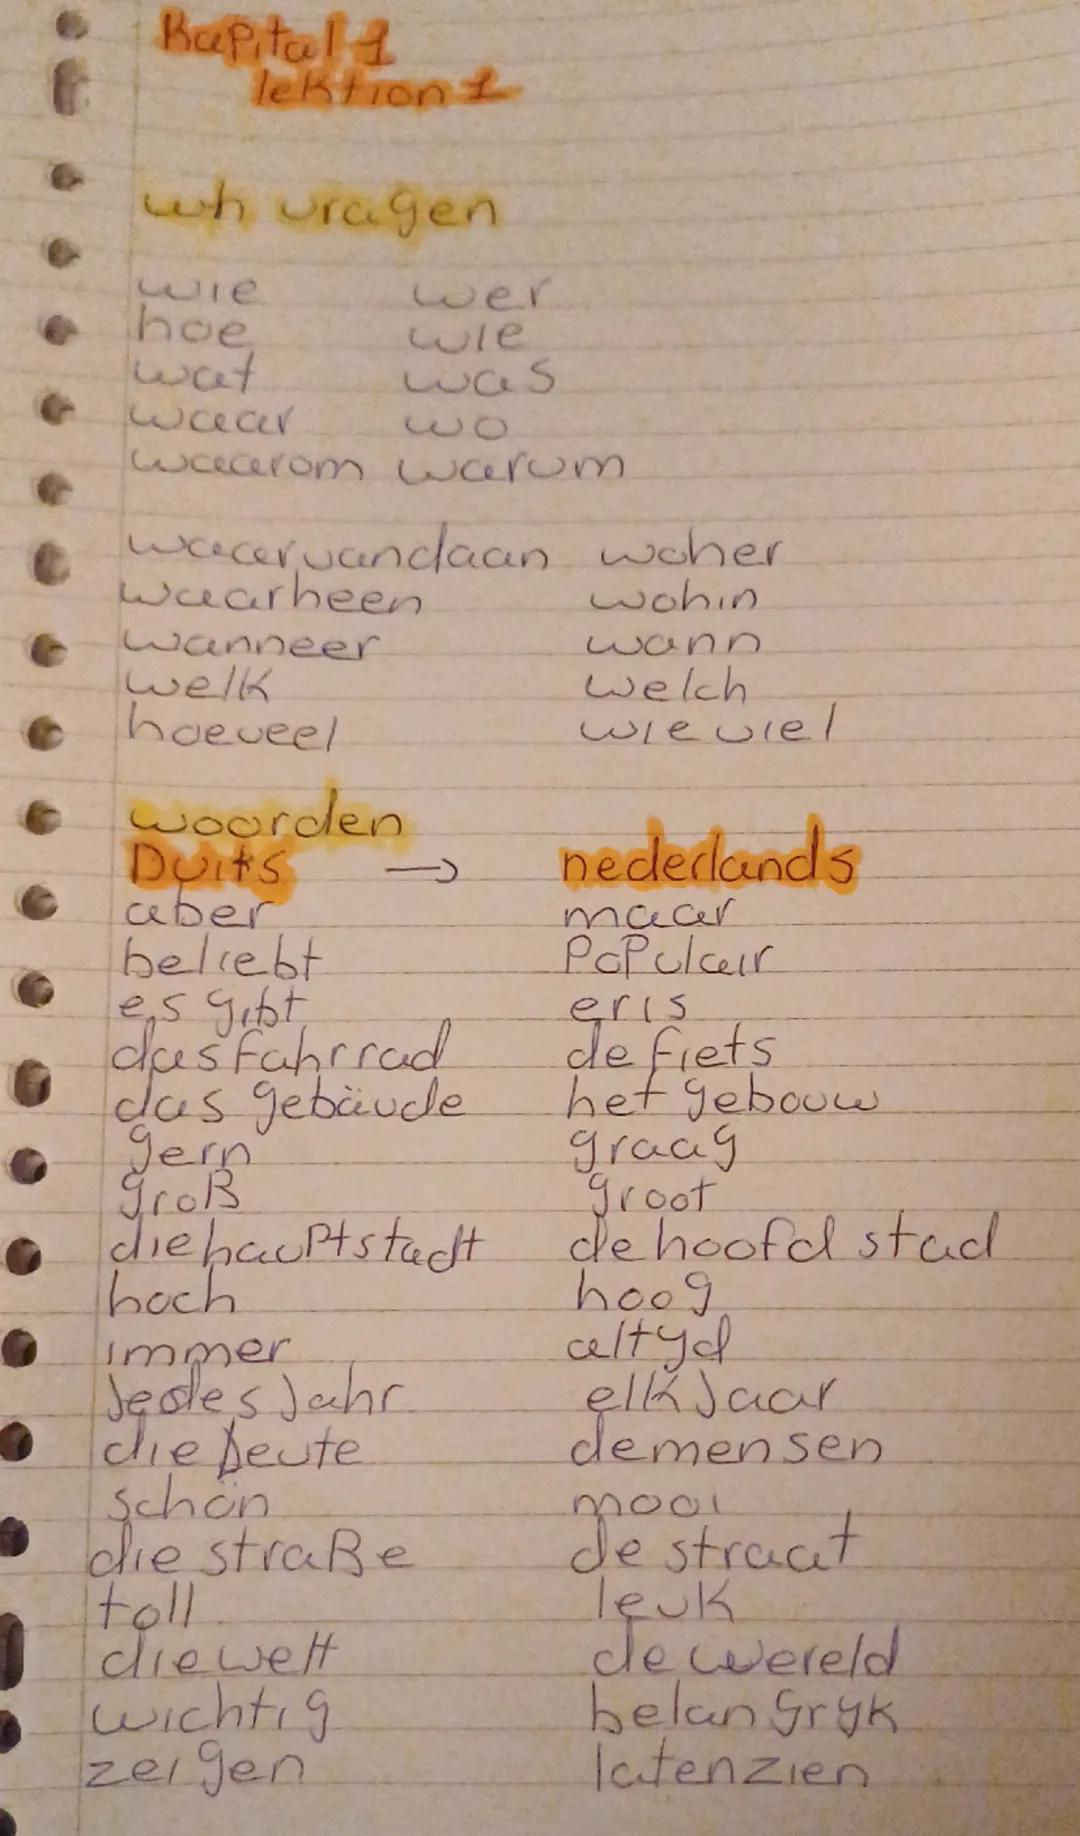 Kapital 1
lektion 1
wh vragen
wie wer
hoe wie
wat was
waar wo
waarom warum
waarvandaan woher
waarheen wohin
wanneer wann
welk welch
hoeveel wieviel
woorden
Duits → nederlands
aber maar
beliebt Populair
es gibt er is
das fahrrad de fiets
das gebäude het gebouw
gern graag
groß groot
die hauptstadt de hoofdstad
hoch hoog
immer altyd
Jedes Jahr elk Jaar
die Leute de mensen
schön mooi
die straße de straat
toll leuk
die welt de wereld
wichtig belangryk
zeigen laten zien